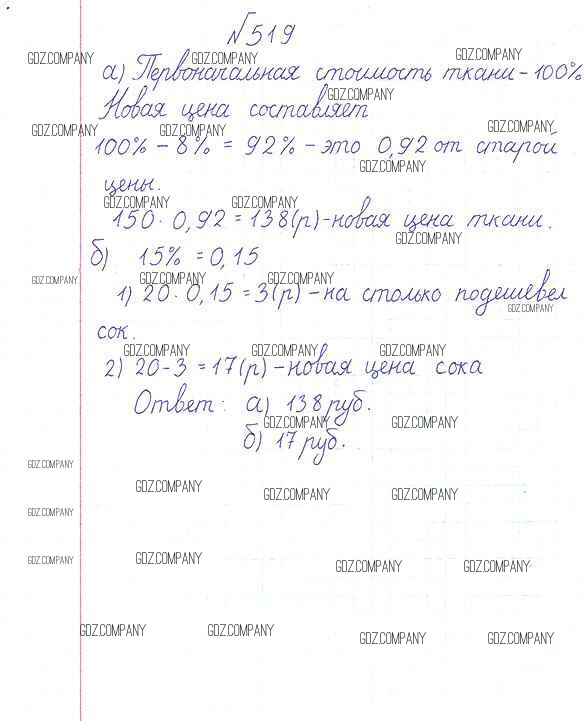 №519
GDZ.COMPANY GDZ.COMPANY GDZ.COMPANY
а) Первоначальная стоимость ткани - 100%
GDZ.COMPANY
Новая цена составляет
GDZ.COMPANY GDZ.COMPANY GDZ.COMPANY
100% - 8% = 92% - это 0,92 от старой
GDZ.COMPANY
цены.
GDZ.COMPANY GDZ.COMPANY
150 · 0,92 = 138(р) - новая цена ткани.
GDZ.COMPANY
б) 15% = 0,15
GDZ.COMPANY GDZ.COMPANY GDZ.COMPANY
1) 20 · 0,15 = 3(р) - на столько подешевел
GDZ.COMPANY
сок.
GDZ.COMPANY GDZ.COMPANY GDZ.COMPANY
2) 20 - 3 = 17(р) - новая цена сока
Ответ: а) 138 руб.
GDZ.COMPANY GDZ.COMPANY
б) 17 руб.
GDZ.COMPANY
GDZ.COMPANY GDZ.COMPANY GDZ.COMPANY
GDZ.COMPANY
GDZ.COMPANY GDZ.COMPANY GDZ.COMPANY GDZ.COMPANY
GDZ.COMPANY GDZ.COMPANY GDZ.COMPANY GDZ.COMPANY